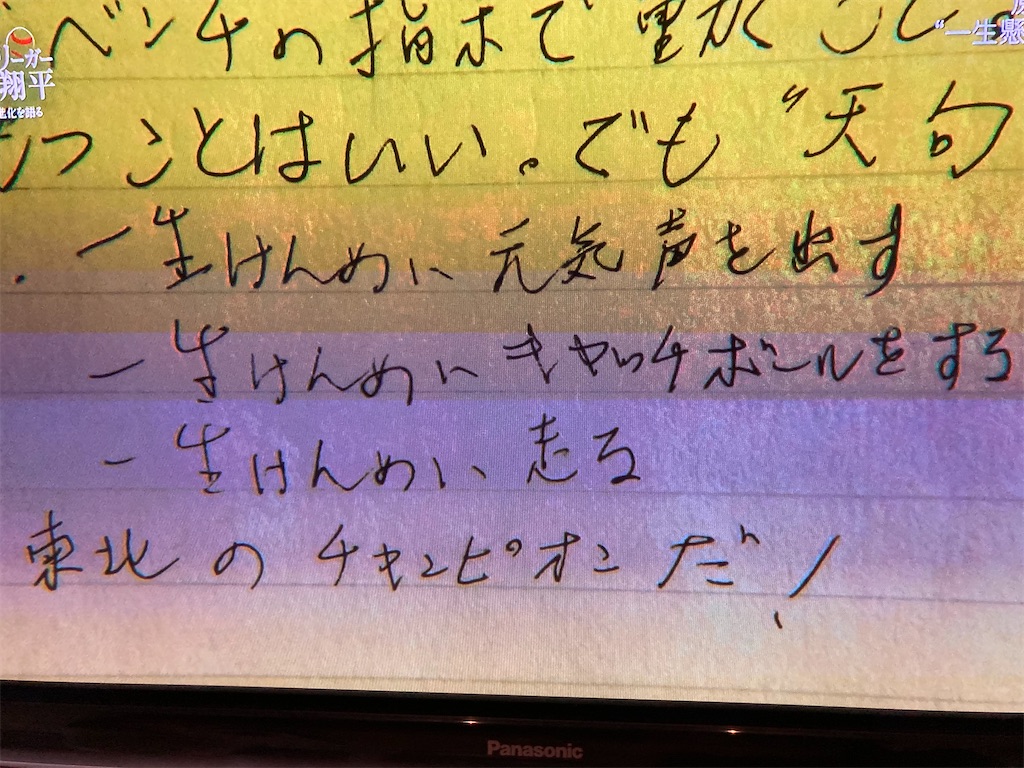 ベンチの指示で
リーガー
翔平
進化を語る
"一生懸
つことはいい。でも "天狗
・一生けんめい 元気声を出す
一生けんめい キャッチボールをする
一生けんめい 走る
東北の チャンピオンだ!
Panasonic